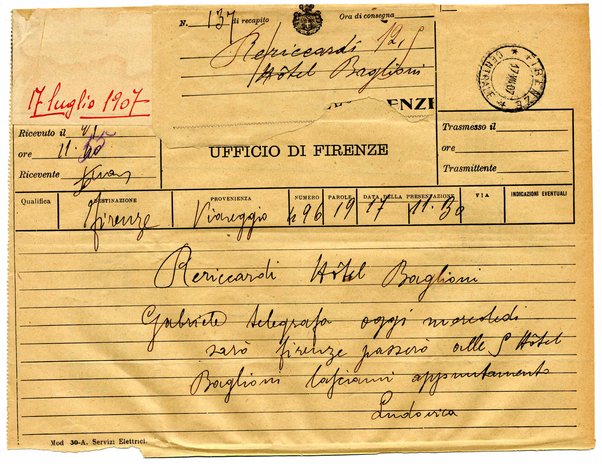 N. 137 di recapito Ora di consegna
Rericcardi 12,5
Hôtel Baglioni
17 luglio 1907
ENZE
FIRENZE
CENTRALE
17 VII 07
Ricevuto il
ore 11.40
Ricevente
UFFICIO DI FIRENZE
Trasmesso il
ore
Trasmittente
Qualifica DESTINAZIONE PROVENIENZA NUMERO PAROLE DATA DELLA PRESENTAZIONE VIA INDICAZIONI EVENTUALI
Firenze Viareggio 496 19 17 11.30
Rericcardi Hôtel Baglioni
Gabriele telegrafa oggi mercoledi
sarò firenze passerò alle 5 Hôtel
Baglioni lasciami appuntamento
Ludovica
Mod 30-A. Servizi Elettrici.